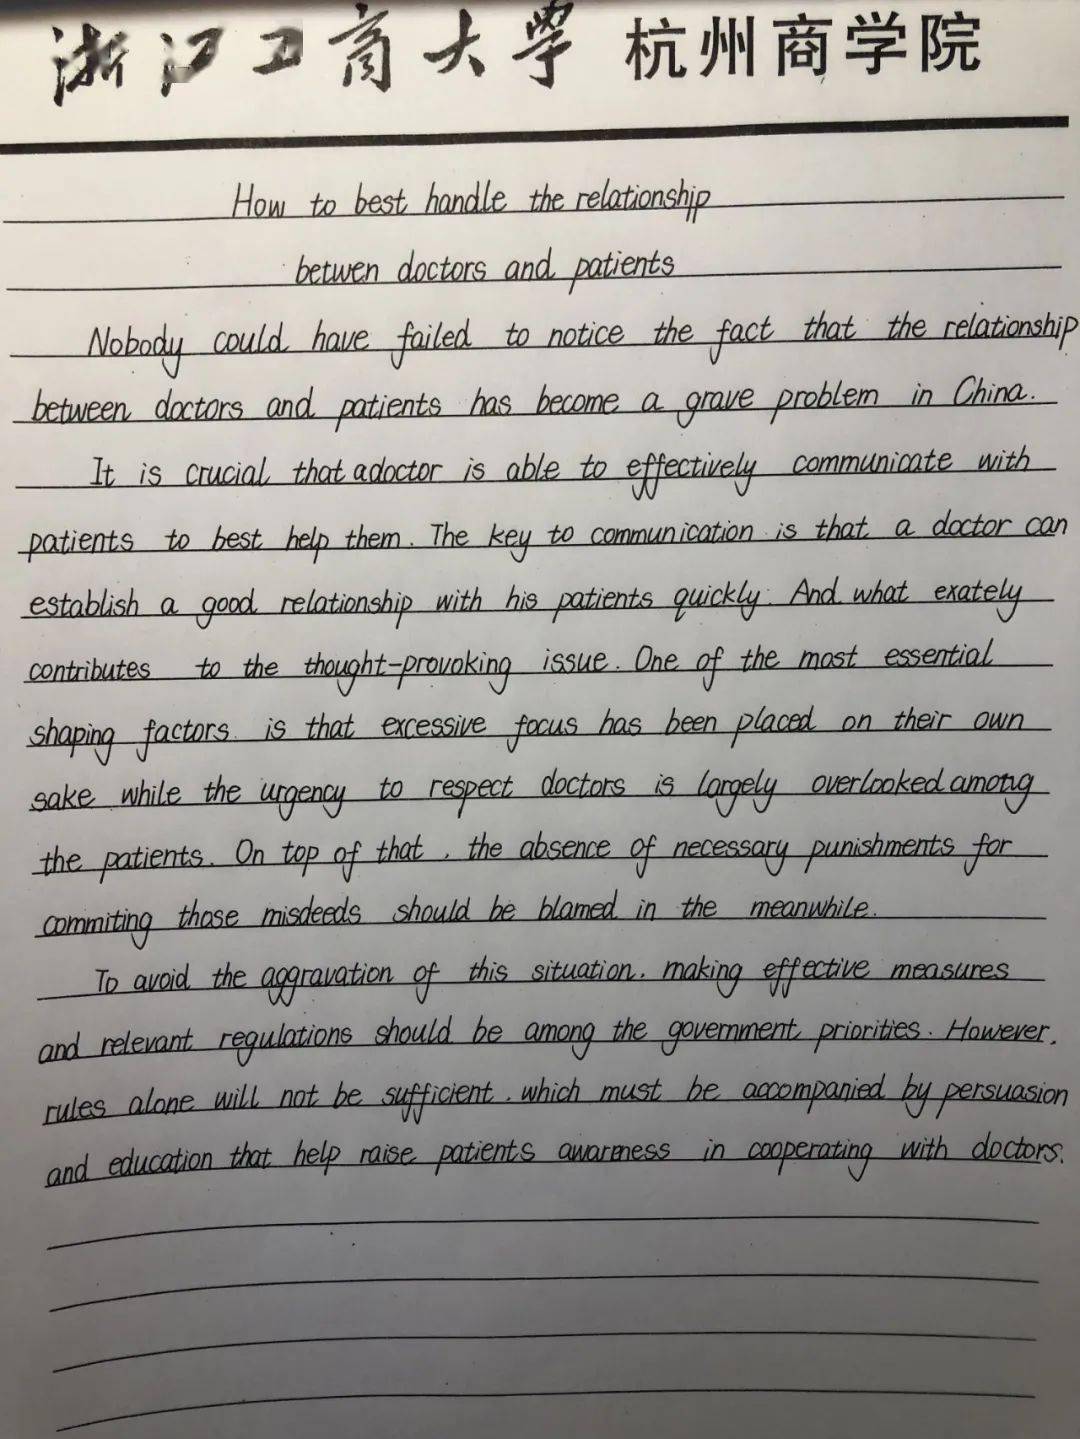 浙江工商大学 杭州商学院
How to best handle the relationship
betwen doctors and patients
Nobody could have failed to notice the fact that the relationship
between doctors and patients has become a grave problem in China.
It is crucial that adoctor is able to effectively communicate with
patients to best help them. The key to communication is that a doctor can
establish a good relationship with his patients quickly. And what exately
contributes to the thought-provoking issue. One of the most essential
shaping factors is that excessive focus has been placed on their own
sake while the urgency to respect doctors is largely overlooked among
the patients. On top of that, the absence of necessary punishments for
commiting those misdeeds should be blamed in the meanwhile.
To avoid the aggravation of this situation, making effective measures
and relevant regulations should be among the government priorities. However,
rules alone will not be sufficient, which must be accompanied by persuasion
and education that help raise patients awarness in cooperating with doctors.